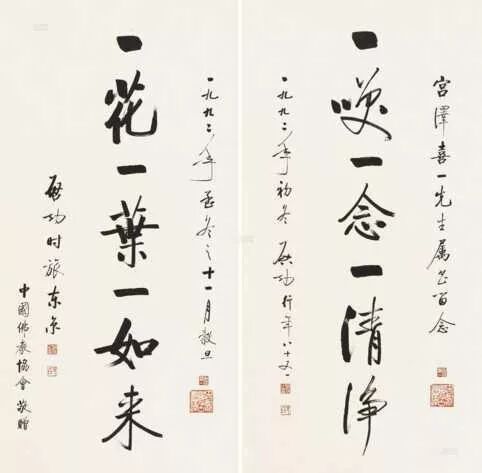 宮澤喜一先生属书留念
一咲一念一清净
一九九二年初冬 啟功 行年八十又一
一九九二年孟冬之十一月穀旦
一花一葉一如来
啟功时旅东京
中國佛教協會敬贈